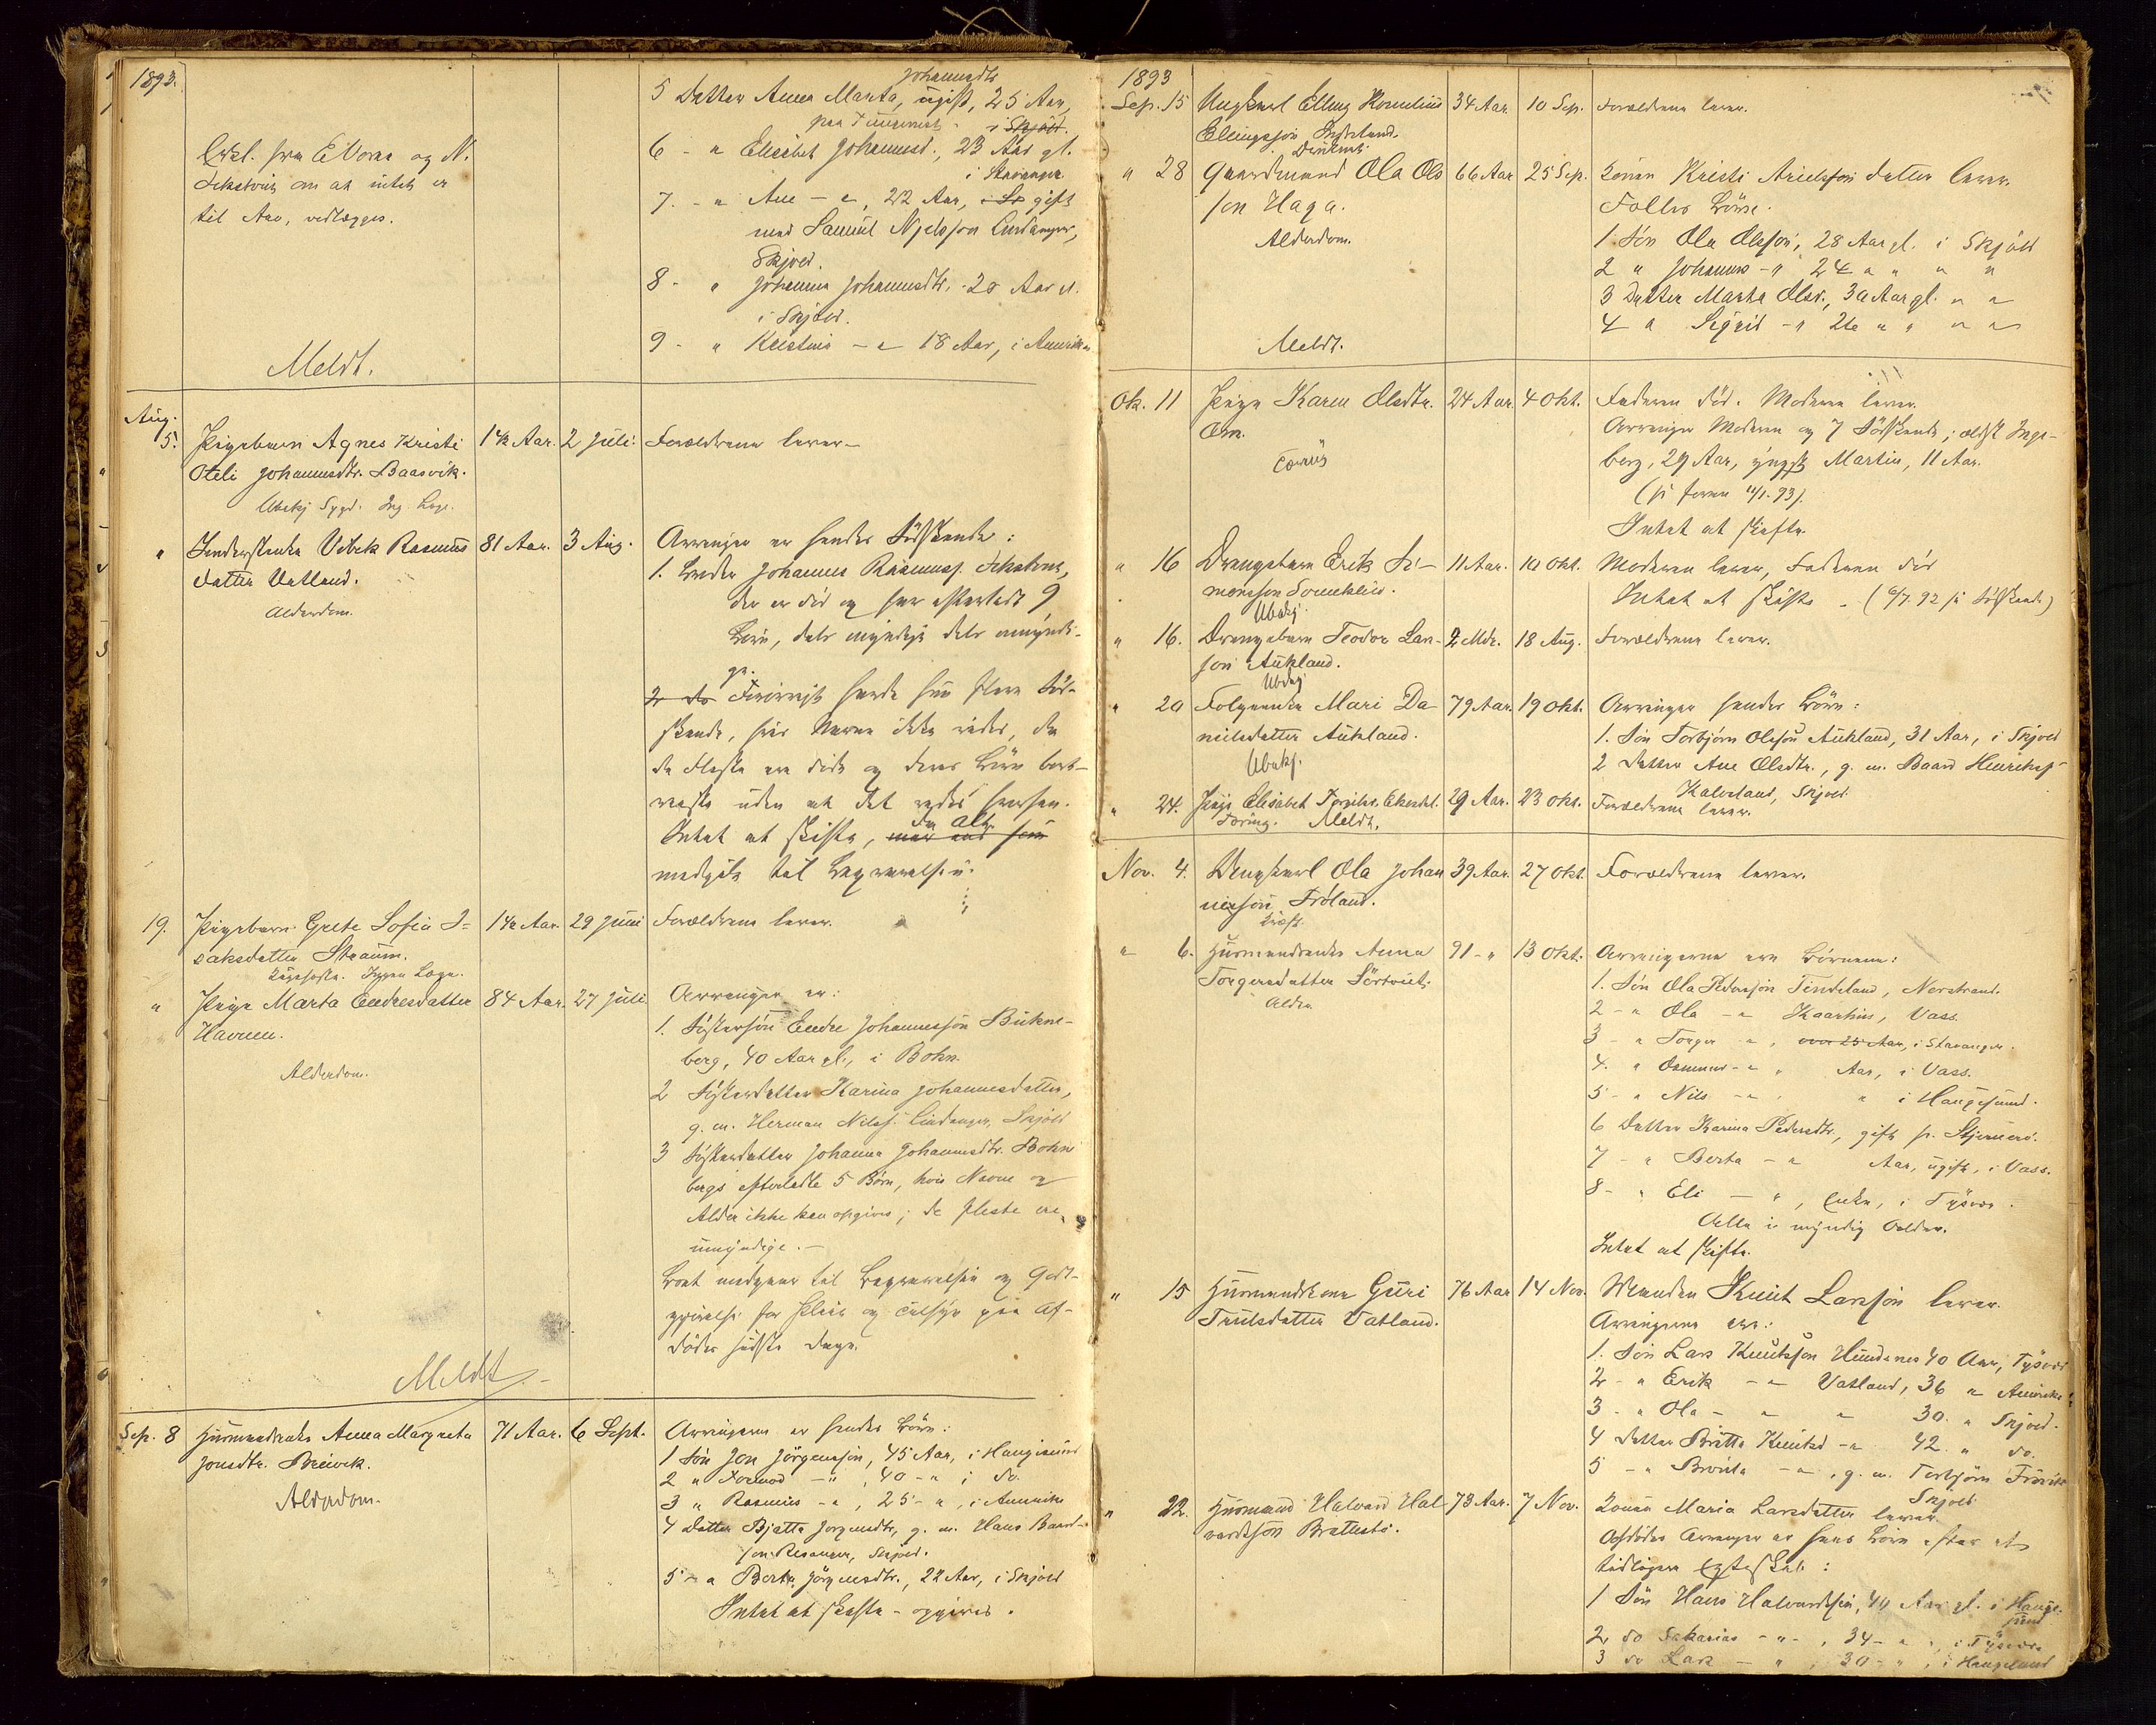 1893.
5 Datter Anna Marta Johannesdtr, ugift, 25 Aar,
i Skjold.
Erkl. fra E Vorra og N.
om at intet er
til Arv, vedlægges.
6 - " Elisabet Johannesd., 23 Aar gl.
i Stavanger
7. - " Ane - " , 22 Aar, gift
med Samuel Njelsson Lindanger,
Skjold.
8 - " Johanna Johannesdtr. 20 Aar gl.
i Skjold.
9 - " Kristine - " 18 Aar, i Amerika
Meldt.
Aug. 5. Pigebarn Agnes Kristi 1½ Aar. 2 Juli. Forældrene lever.
Oteli Johannesdtr. Baasvik.
Ubekj Sygd. Ing. Læge.
" Inderstenke Vibek Rasmus 81 Aar. 3 Aug. Arvinger er hendes Sødskende:
datter Vatland.
Alderdom.
1. Broder Johannes Rasmuss.
der er død og har efterladt 9
Børn, dels myndige dels umyndi-
ge.
2 do Forøvrigt havde hun flere Sød-
skende, hvis Navne ikke vides, da
de fleste ere døde og deres Børn bort-
reiste uden at det vides hvorhen.
Intet at skifte, da alt
medgik til Begravelsen.
19. Pigebarn Grete Sofia I- 1½ Aar. 29 Juni Forældrene lever.
saksdatter Straum.
Ingen Læge.
" Pige Marta Endresdatter 84 Aar. 27 Juli. Arvinger er:
Havnen.
Alderdom.
1. Søstersøn Endre Johannesson Bukne-
berg, 40 Aar gl., i Bokn.
2 Søsterdatter Karina Johannesdatter,
g. m. Herman Nilss. Lindanger, Skjold
3 Søsterdatter Johanna Johannesdtr. Bokne
bergs efterladte 5 Børn, hvis Navne og
Alder ikke kan opgives; de fleste ere
umyndige. -
Boet medgaar til Begravelsen og Godt-
gjørelse for Pleie og Tilsyn paa Af-
dødes sidste Dage.
Meldt
Sep. 8 Husmandsenke Anna Margreta 71 Aar. 6 Sept. Arvingerne er hendes Børn:
Jonsdtr. Breivik.
Alderdom.
1 Søn Jon Jørgensson, 45 Aar, i Haugesund
2 " Tormod - " , 40 - " i do.
3 " Rasmus - " , 25 - " , i Amerika
4 Datter Bjatta Jørgensdtr, g. m. Hans Baard-
son Skjold.
5 - " Berta Jørgensdtr., 22 Aar, i Skjold
Intet at skifte - opgives.
1893
Sep. 15 Ungkarl Elling Kornelius 34 Aar. 10 Sep. Forældrene lever.
Ellingsson
Druknet.
" 28 Gaardmand Ola Ols 66 Aar 25 Sep. Konen Kristi Arielsson datter lever.
son Haga.
Alderdom.
Fælles Børn.
1. Søn Ola Olsson, 28 Aar gl. i Skjold
2 " Johannes - " 24 " " " "
3 Datter Marta Olsd., 30 Aar gl. " "
4 " Sigrid - " 26 " " " "
Meldt.
Ok. 11 Pige Karen Olsdtr. 24 Aar. 4 Okt. Faderen død. Moderen lever.
Øen.
Arvinger Moderen og 7 Sødskende; ældst Inge-
berg, 29 Aar, yngst Martin, 11 Aar.
Intet at skifte.
" 16 Drengebarn Erik Si- 11 Aar. 10 Okt. Moderen lever, Faderen død
monsson
Ubekj.
Intet at skifte.
" 16. Drengebarn Teodor Lar- 2 Mdr. 18 Aug. Forældrene lever.
son Aukland.
Ubekj
" 20 Folgeenke Mari Da- 79 Aar. 19 Okt. Arvinger hendes Børn:
nielsdatter Aukland.
Ubekj.
1. Søn Torbjørn Olsson Aukland, 31 Aar, i Skjold
2 Datter Ane Olsdtr., g. m. Baard Henrikss
Kalveland, Skjold.
" 24. Pige Elisabet 29 Aar. 23 Okt. Forældrene lever.
Tæring. Meldt.
Nov. 4. Ungkarl Ola Johan 39 Aar. 27 Okt. Forældrene lever.
nesson Frøland.
Kræft.
" 6. Husmandsenke Anna 91 - " 13 Okt. Arvingerne ere Børnene:
Torgersdatter Sørtveit.
Alder.
1. Søn Ola Pedersson Tendeland, Nerstrand.
2 - " Ola - " Kaarhus, Vass.
3 - " Torger - " , over 25 Aar, i Stavanger.
4. " Osmund - " " Aar, i Vass.
5 - " Nils - " " i Haugesund.
6 Datter Karina Pedersdtr, gift p. Stjernerø.
7 - " Berta - " Aar, ugift, i Vass.
8 - " Eli - " , Enke, i Tysver.
Alle i myndig Alder.
Intet at skifte.
" 15 Husmandskone Guri 76 Aar 14 Nov. Manden Knut Larsson lever.
Trulsdatter Vatland.
Arvingerne ere:
1. Søn Lars Knutsson Hundsnes 40 Aar, Tysver
2 - " Erik - " Vatland, 36 " Amerika
3 - " Ola - " " 30. " Skjold.
4 Datter Britta Knutsd - " 42. " do.
5 - " - " , g. m. Torbjørn
Skjold
" 22. Husmand Halvard Hal 73 Aar. 7 Nov. Konen Maria Larsdatter lever.
vardsson Brattestø.
Afdødes Arvinger er hans Børn efter et
tidligere Egteskab:
1 Søn Hans Halvardsson, 40 Aar gl. i Hauge-
sund
2 do Sakarias - " - , 34 - " , i Tysver
3 do Lars - " , 30 - " , i Haugesund